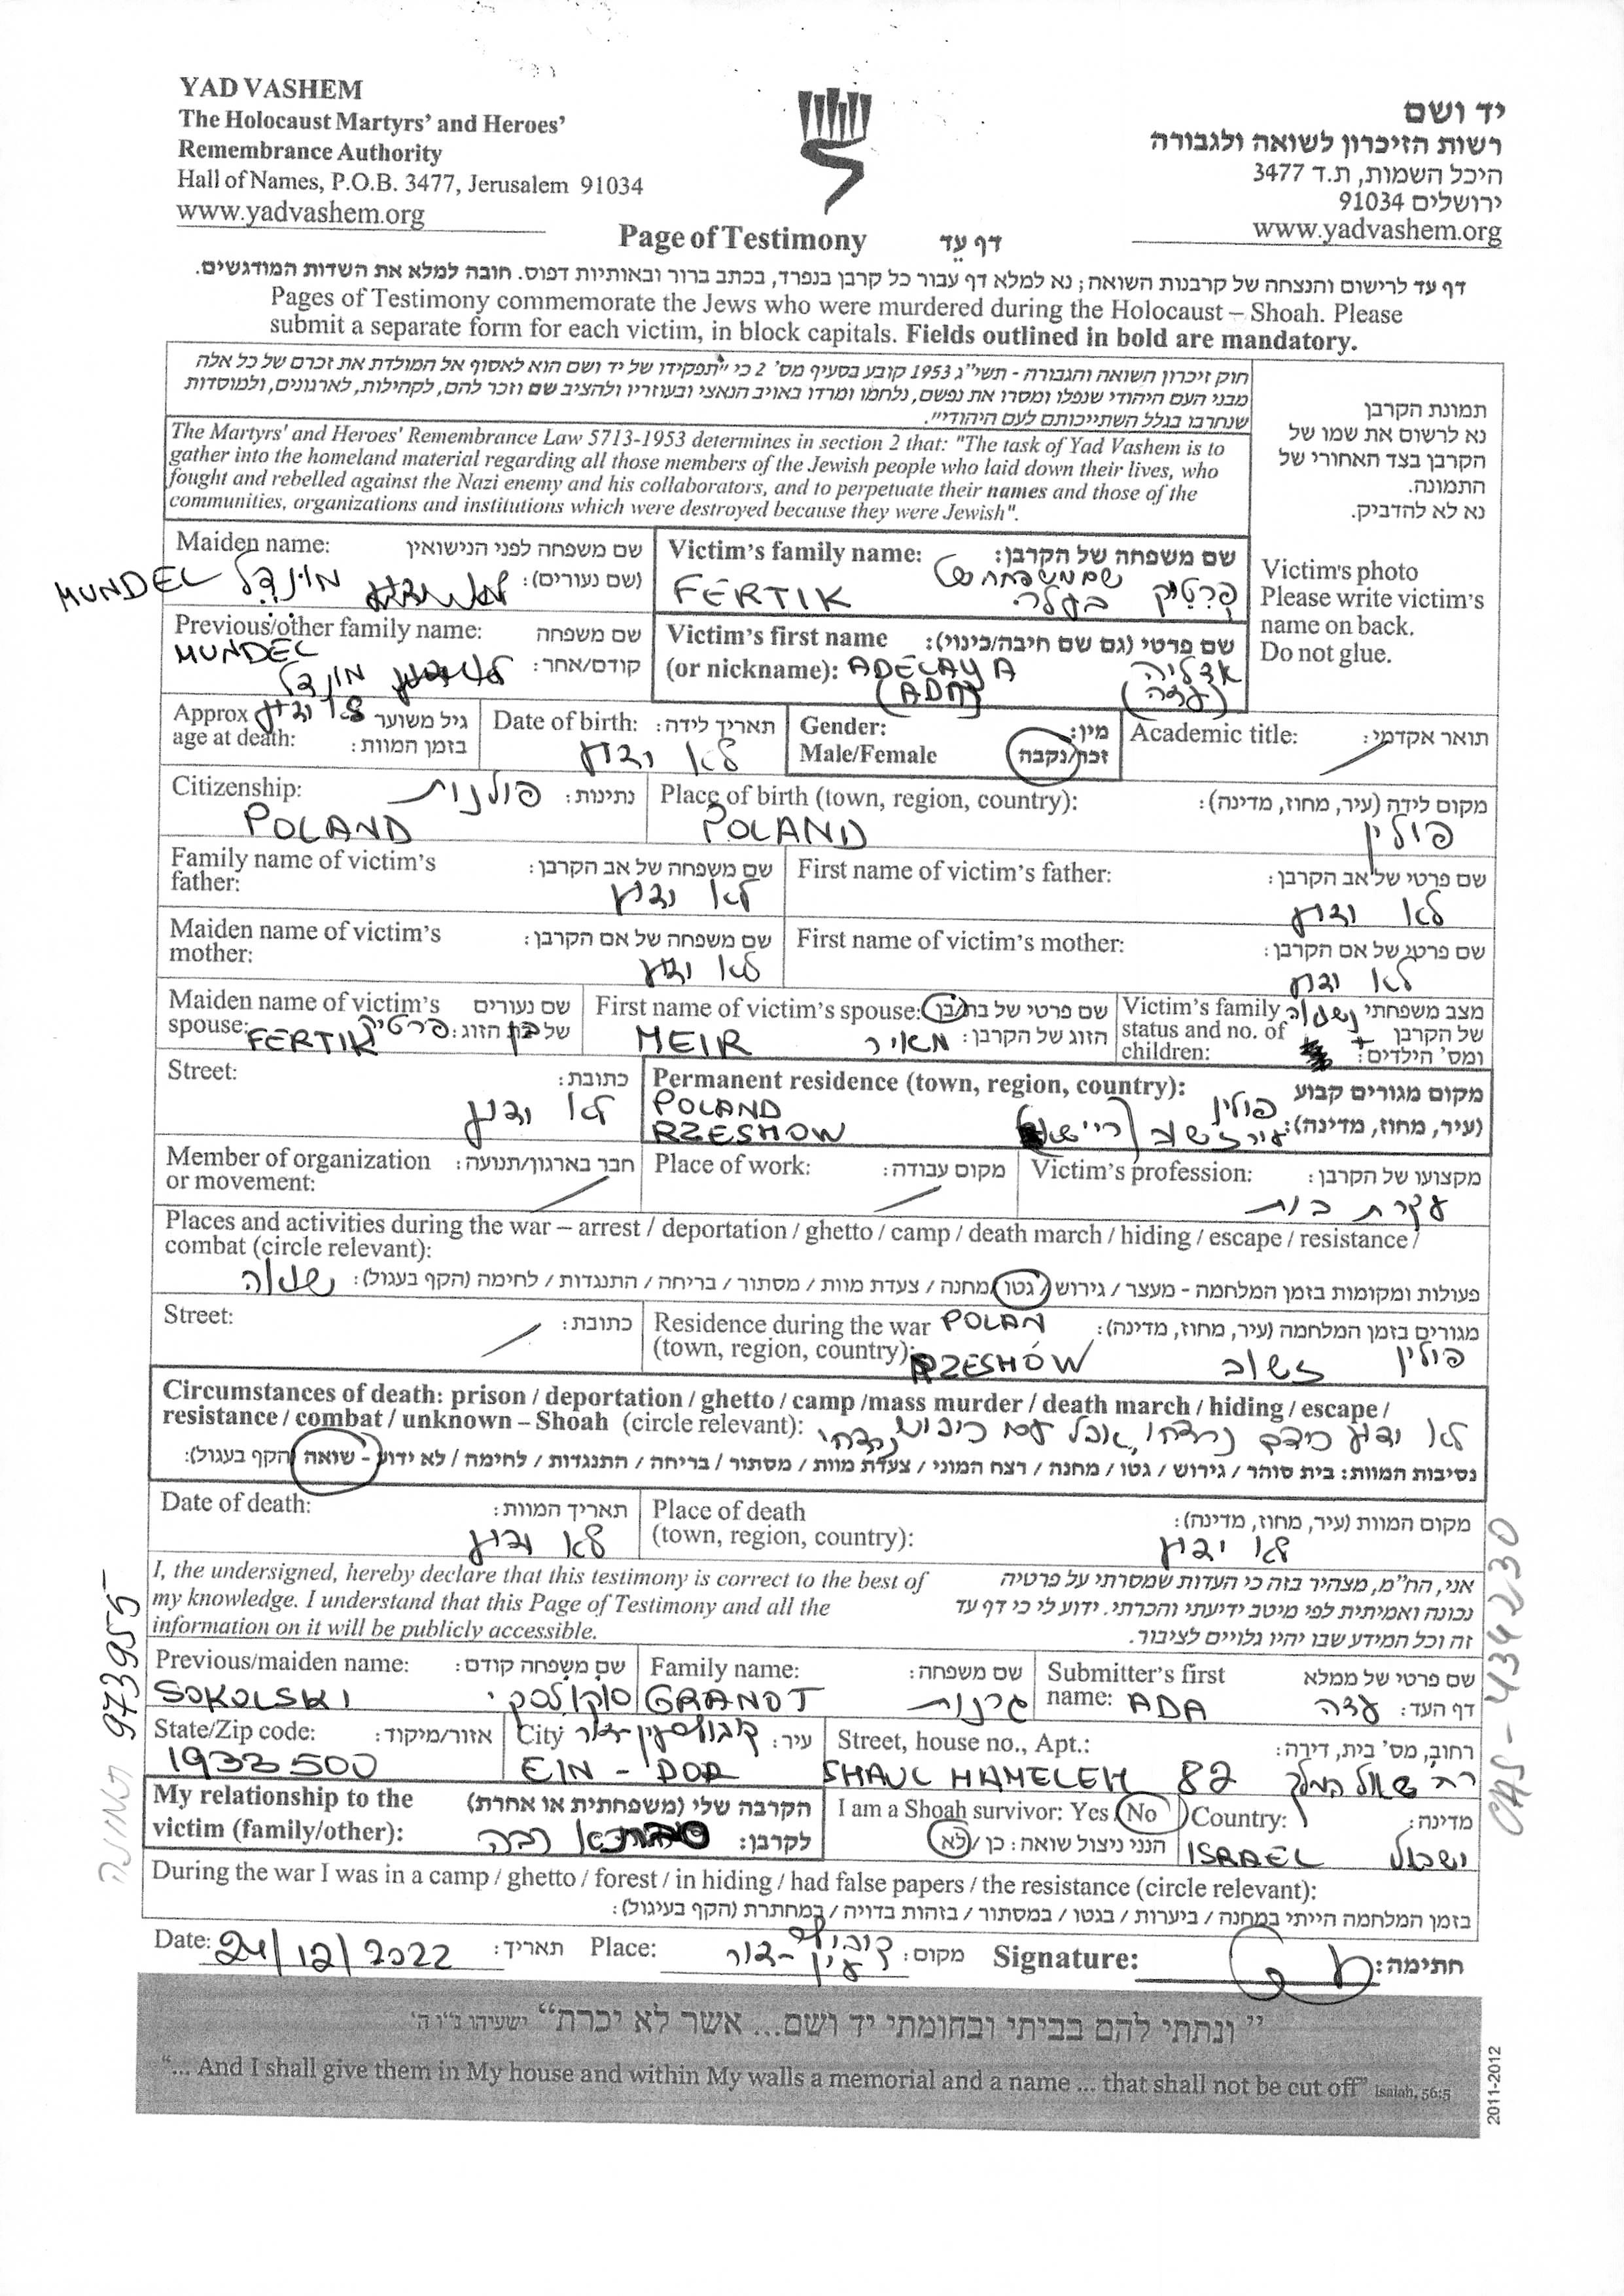 YAD VASHEM
The Holocaust Martyrs' and Heroes'
Remembrance Authority
Hall of Names, P.O.B. 3477, Jerusalem 91034
www.yadvashem.org
יד ושם
רשות הזיכרון לשואה ולגבורה
היכל השמות, ת.ד 3477
ירושלים 91034
www.yadvashem.org
Page of Testimony דף עֵד
דף עד לרישום והנצחה של קרבנות השואה; נא למלא דף עבור כל קרבן בנפרד, בכתב ברור ובאותיות דפוס. חובה למלא את השדות המודגשים.
Pages of Testimony commemorate the Jews who were murdered during the Holocaust – Shoah. Please
submit a separate form for each victim, in block capitals. Fields outlined in bold are mandatory.
חוק זיכרון השואה והגבורה - תשי"ג 1953 קובע בסעיף מס' 2 כי "תפקידו של יד ושם הוא לאסוף אל המולדת את זכרם של כל אלה
מבני העם היהודי שנפלו ומסרו את נפשם, נלחמו ומרדו באויב הנאצי ובעוזריו ולהציב שם וזכר להם, לקהילות, לארגונים, ולמוסדות
שנחרבו בגלל השתייכותם לעם היהודי".
The Martyrs' and Heroes' Remembrance Law 5713-1953 determines in section 2 that: "The task of Yad Vashem is to
gather into the homeland material regarding all those members of the Jewish people who laid down their lives, who
fought and rebelled against the Nazi enemy and his collaborators, and to perpetuate their names and those of the
communities, organizations and institutions which were destroyed because they were Jewish".
תמונת הקרבן
נא לרשום את שמו של
הקרבן בצד האחורי של
התמונה.
נא לא להדביק.
Victim's photo
Please write victim's
name on back.
Do not glue.
Maiden name: שם משפחה לפני הנישואין
(שם נעורים): מונדל MUNDEL
Victim's family name: שם משפחה של הקרבן:
FERTIK פרטיק שם משפחה של
בעלה
Previous/other family name: שם משפחה
קודם/אחר: MUNDEL
מונדל
Victim's first name שם פרטי (גם שם חיבה/כינוי):
(or nickname): ADELAYA אדליה
(ADA) (עדה)
Approx גיל משוער לא ידוע
age at death: בזמן המוות:
Date of birth: תאריך לידה:
לא ידוע
Gender: מין:
Male/Female זכר/נקבה
Academic title: תואר אקדמי:
Citizenship: נתינות: פולנית
POLAND
Place of birth (town, region, country): מקום לידה (עיר, מחוז, מדינה):
POLAND פולין
Family name of victim's שם משפחה של אב הקרבן:
father: לא ידוע
First name of victim's father: שם פרטי של אב הקרבן:
לא ידוע
Maiden name of victim's שם משפחה של אם הקרבן:
mother: לא ידוע
First name of victim's mother: שם פרטי של אם הקרבן:
לא ידוע
Maiden name of victim's שם נעורים
spouse: FERTIK של בן הזוג: פרטיק
First name of victim's spouse: שם פרטי של בת/בן
MEIR הזוג של הקרבן: מאיר
Victim's family מצב משפחתי נשואה
status and no. of של הקרבן +
children: ומס' הילדים:
Street: כתובת:
לא ידוע
Permanent residence (town, region, country): מקום מגורים קבוע
POLAND פולין
RZESHOW (עיר, מחוז, מדינה): עיר זשוב
Member of organization חבר בארגון/תנועה:
or movement:
Place of work: מקום עבודה:
Victim's profession: מקצועו של הקרבן:
עקרת בית
Places and activities during the war – arrest / deportation / ghetto / camp / death march / hiding / escape / resistance /
combat (circle relevant):
פעולות ומקומות בזמן המלחמה - מעצר / גירוש / גטו / מחנה / צעדת מוות / מסתור / בריחה / התנגדות / לחימה (הקף בעגול):
Street: כתובת:
Residence during the war POLAN מגורים בזמן המלחמה (עיר, מחוז, מדינה):
(town, region, country): RZESHOW זשוב פולין
Circumstances of death: prison / deportation / ghetto / camp /mass murder / death march / hiding / escape /
resistance / combat / unknown – Shoah (circle relevant): לא ידוע
נסיבות המוות: בית סוהר / גירוש / גטו / מחנה / רצח המוני / צעדת מוות / מסתור / בריחה / התנגדות / לחימה / לא ידוע - שואה (הקף בעגול):
Date of death: תאריך המוות:
לא ידוע
Place of death מקום המוות (עיר, מחוז, מדינה):
(town, region, country): לא ידוע
I, the undersigned, hereby declare that this testimony is correct to the best of
my knowledge. I understand that this Page of Testimony and all the
information on it will be publicly accessible.
אני, הח"מ, מצהיר בזה כי העדות שמסרתי על פרטיה
נכונה ואמיתית לפי מיטב ידיעתי והכרתי. ידוע לי כי דף עד
זה וכל המידע שבו יהיו גלויים לציבור.
Previous/maiden name: שם משפחה קודם:
SOKOLSKI סוקולסקי
Family name: שם משפחה:
GRANOT גרנות
Submitter's first שם פרטי של ממלא
name: ADA דף העד: עדה
State/Zip code: אזור/מיקוד:
1933500
City עיר: קיבוץ עין-דור
EIN - DOR
Street, house no., Apt.: רחוב, מס' בית, דירה:
SHAUL HAMELEH 82 רח' שאול המלך
My relationship to the הקרבה שלי (משפחתית או אחרת)
victim (family/other): לקרבן: סבתא רבה
I am a Shoah survivor: Yes / No
הנני ניצול שואה: כן / לא
Country: מדינה:
ISRAEL ישראל
During the war I was in a camp / ghetto / forest / in hiding / had false papers / the resistance (circle relevant):
בזמן המלחמה הייתי במחנה / ביערות / בגטו / במסתור / בזהות בדויה / במחתרת (הקף בעיגול):
Date: 24/12/2022 תאריך: Place: קיבוץ עין-דור מקום: Signature: חתימה:
"ונתתי להם בביתי ובחומתי יד ושם... אשר לא יכרת" ישעיהו נ"ו ה'
"... And I shall give them in My house and within My walls a memorial and a name ... that shall not be cut off" Isaiah, 56:5
2011-2012
תמונה 973955
CAS - 434230